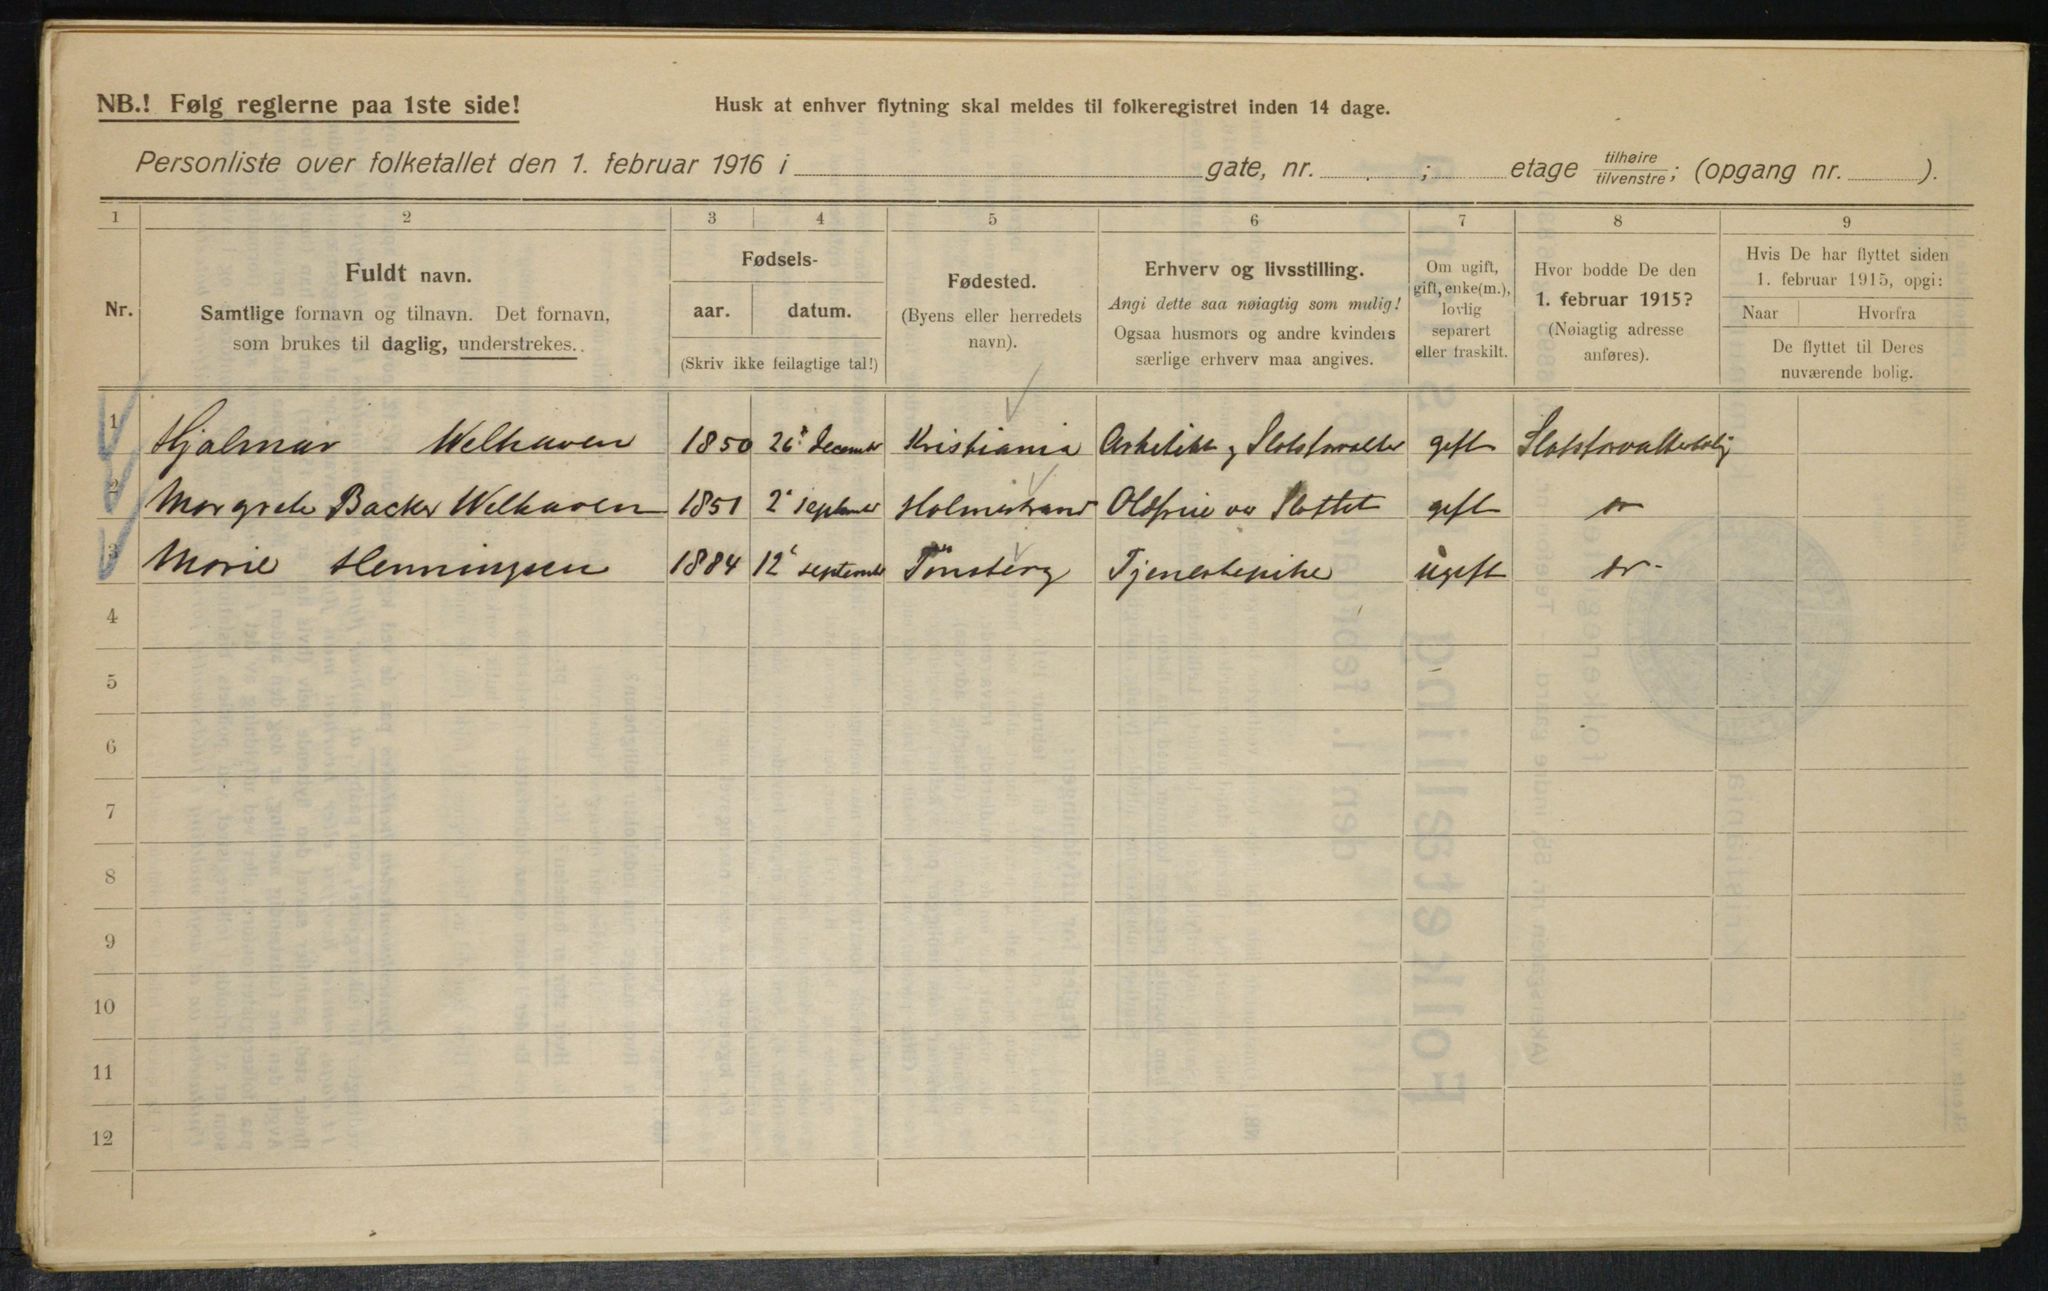 NB.! Følg reglerne paa 1ste side!
Husk at enhver flytning skal meldes til folkeregistret inden 14 dage.
Personliste over folketallet den 1. februar 1916 i gate, nr. ; etage tilhøire/tilvenstre; (opgang nr. ).
1 2 3 4 5 6 7 8 9
Nr.
Fuldt navn.
Samtlige fornavn og tilnavn. Det fornavn,
som brukes til daglig, understrekes.
Fødsels-
aar. datum.
(Skriv ikke feilagtige tal!)
Fødested.
(Byens eller herredets
navn).
Erhverv og livsstilling.
Angi dette saa nøiagtig som mulig!
Ogsaa husmors og andre kvinders
særlige erhverv maa angives.
Om ugift,
gift, enke(m.),
lovlig
separert
eller fraskilt.
Hvor bodde De den
1. februar 1915?
(Nøiagtig adresse
anføres).
Hvis De har flyttet siden
1. februar 1915, opgi:
Naar Hvorfra
De flyttet til Deres
nuværende bolig.
1 Hjalmar Welhaven 1850 26 december Kristiania Arkitekt og Slotsforvalter gift Slotsforvalterbolig
2 Margrete Backer Welhaven 1851 2 september Holmestrand Oldfrue ved Slottet gift do
3 Marie Henningsen 1884 12 september Tønsberg Tjenestepike ugift do
4
5
6
7
8
9
10
11
12